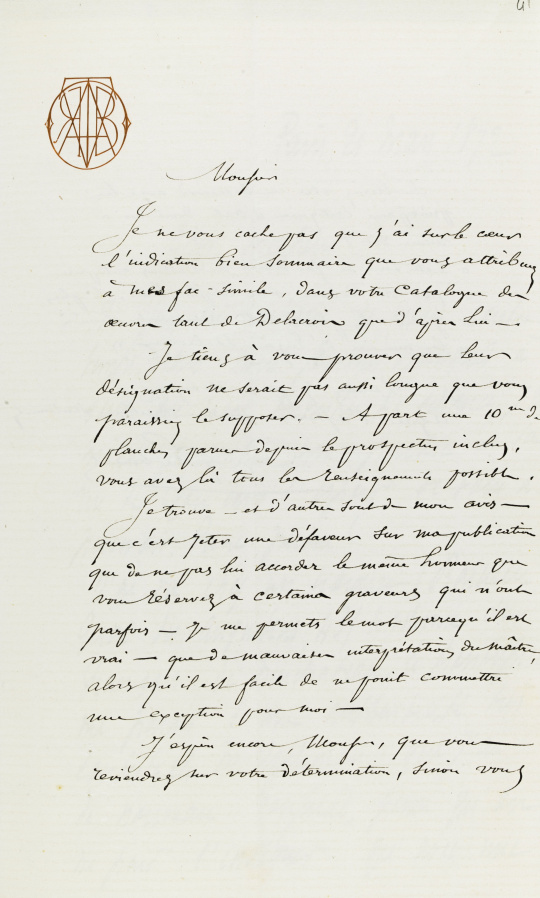 Monsieur
Je ne vous cache pas que j'ai sur le cœur
l'indication bien sommaire que vous attribuez
à mes fac-simile, dans votre Catalogue des
œuvres tant de Delacroix que d'après Lui —
Je tiens à vous prouver que leur
désignation ne serait pas aussi longue que vous
paraissiez le supposer. — A part une 10ne de
planches parues depuis le prospectus inclus,
vous avez là tous les renseignements possible.
Je trouve — et d'autres sont de mon avis —
que c'est jeter une défaveur sur ma publication
que de ne pas lui accorder le même honneur que
vous réservez à certains graveurs qui n'ont
parfois — Je me permets le mot parcequ'il est
vrai — que de mauvaises interprétations du maître,
alors qu'il est facile de ne point commettre
une exception pour moi —
J'espère encore, Monsieur, que vous
reviendrez sur votre détermination, sinon vous